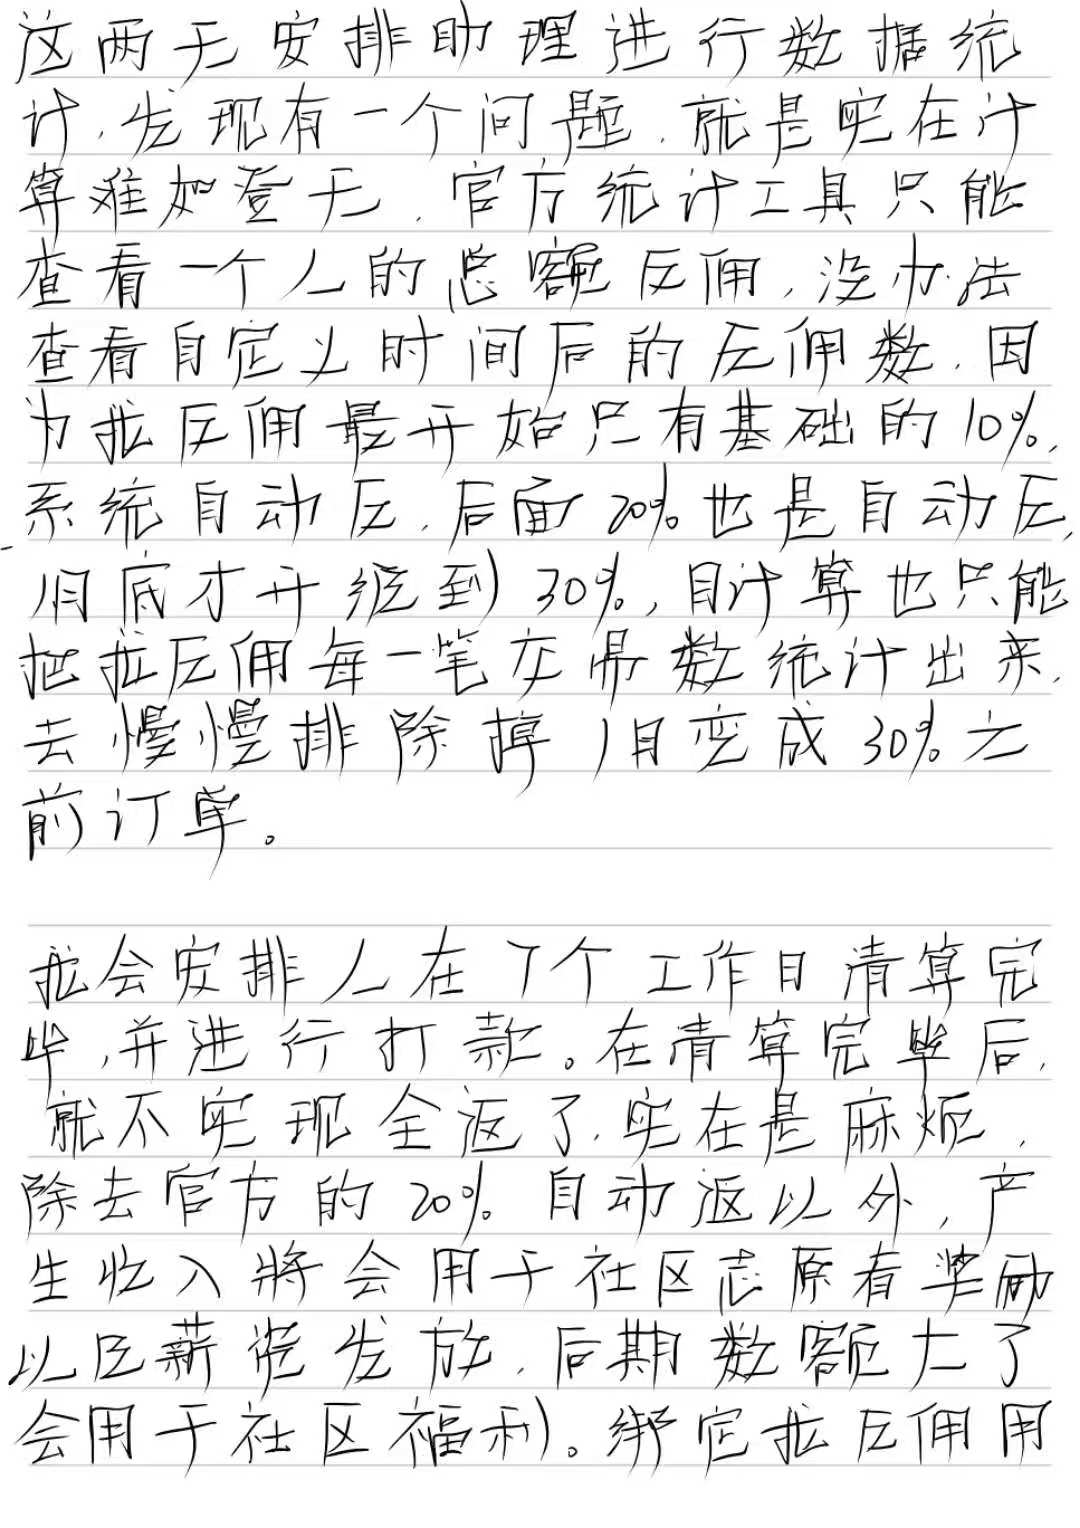 这两天安排助理进行数据统
计,发现有一个问题,就是实在计
算难如登天,官方统计工具只能
查看一个人的总额反佣,没办法
查看自定义时间后的反佣数,因
为我反佣最开始只有基础的10%,
系统自动反,后面20%也是自动反,
1月底才升级到30%,目计算也只能
把我反佣每一笔交易数统计出来,
去慢慢排除掉1月变成30%之
前订单。
我会安排人在7个工作日清算完
毕,并进行打款。在清算完毕后,
就不实现全返了,实在是麻烦,
除去官方的20%自动返以外,产
生收入将会用于社区志愿者奖励
以及薪资发放,后期数额大了
会用于社区福利。绑定我反佣用